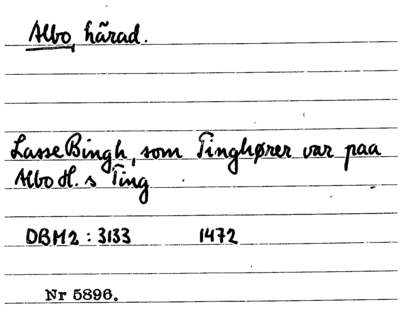 Albo, härad.
Lasse Bingh, som Tinghører var paa
Albo H. s Ting
DBM2 : 3133 1472
Nr 5896.